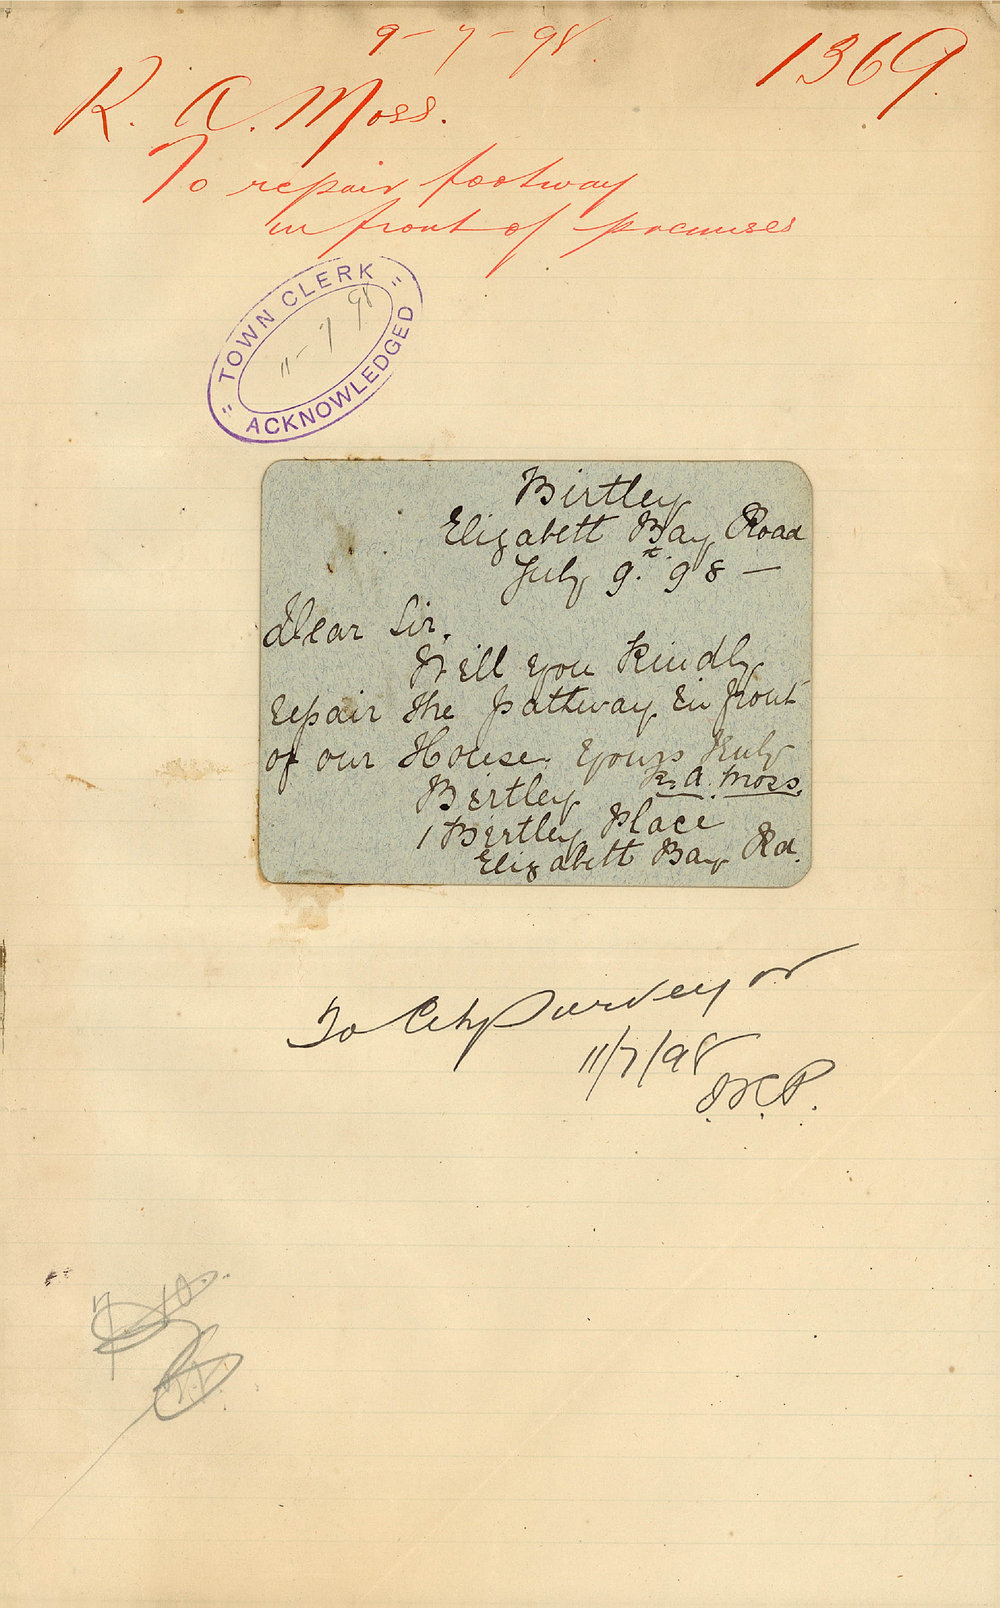 9-7-98
1369.
R. A. Moss.
To repair footway
in front of premises
"TOWN CLERK"
11-7 98
ACKNOWLEDGED
Birtley
Elizabeth Bay Road
July 9th 98 —
Dear Sir.
Will you kindly
repair the pathway in front
of our House. Yours truly
R. A. Moss.
Birtley
1 Birtley Place
Elizabeth Bay Rd.
To City Surveyor
11/7/98